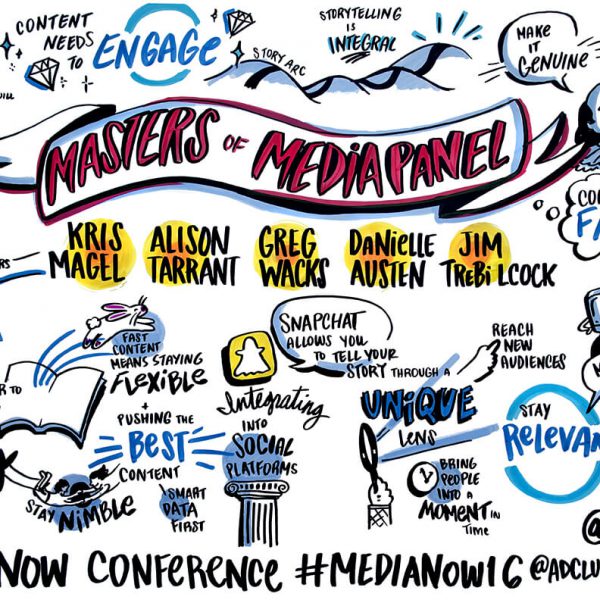 CONTENT
NEEDS
TO
ENGAGE
STORY ARC
STORYTELLING
IS
INTEGRAL
MAKE
IT
GENUINE
MASTERS OF MEDIA PANEL
KRIS
MAGEL
ALISON
TARRANT
GREG
WACKS
DANIELLE
AUSTEN
JIM
TREBILCOCK
FAST
CONTENT
MEANS STAYING
FLEXIBLE
+
PUSHING THE
BEST
CONTENT
SMART
DATA
FIRST
STAY NIMBLE
SNAPCHAT
ALLOWS YOU
TO TELL YOUR
STORY THROUGH A
UNIQUE
LENS
Integrating
INTO
SOCIAL
PLATFORMS
REACH
NEW
AUDIENCES
BRING
PEOPLE
INTO A
MOMENT IN
TIME
STAY
RELEVAN
NOW CONFERENCE #MEDIANOW16 @ADCLU